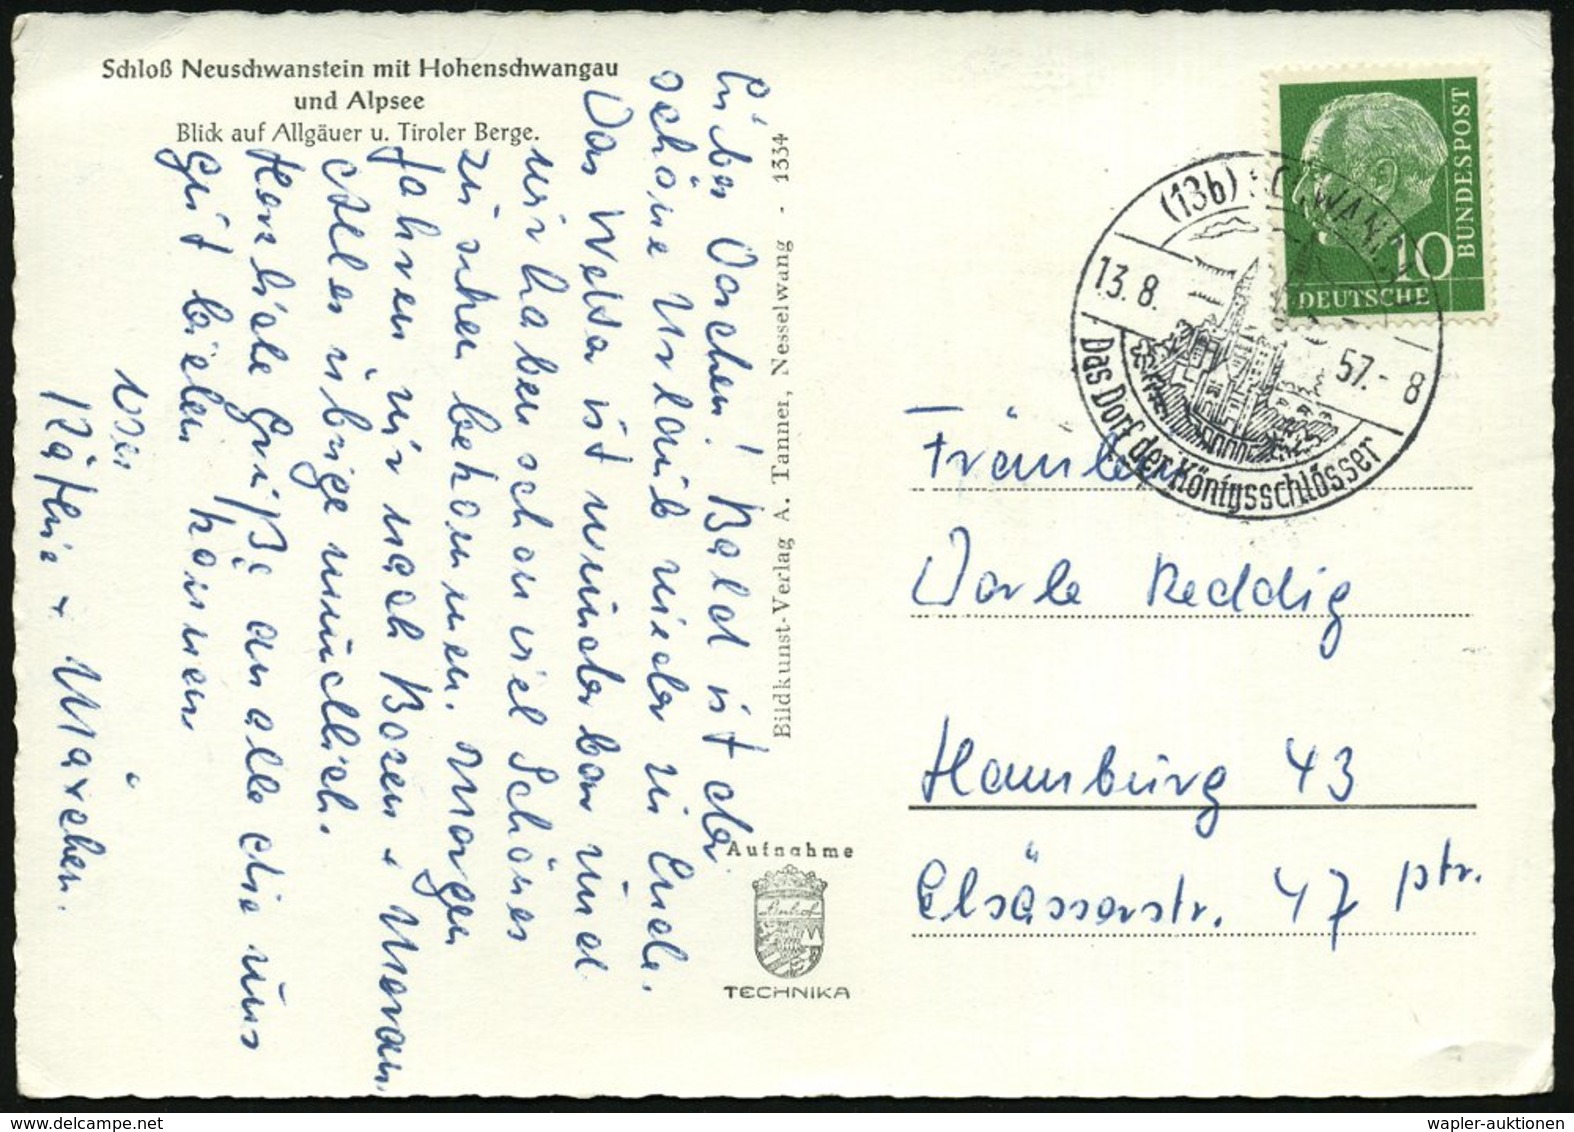 Schloß Neuschwanstein mit Hohenschwangau
und Alpsee
Blick auf Allgäuer u. Tiroler Berge.
Bald ist der
schöne Urlaub wieder zu Ende.
Das Wetter ist wunderbar und
wir haben schon viel Schönes
zu sehen bekommen. Morgen
fahren wir nach Bozen + Meran.
Alles übrige mündlich.
Herzliche Grüße an alle die uns
gut leiden können
von
Käthe +
Bildkunst-Verlag A. Tanner, Nesselwang - 1334
Aufnahme
TECHNIKA
DEUTSCHE
BUNDESPOST
10
(13b) SCHWANGAU
13.8.57.-8
Das Dorf der Königsschlösser
Fräulein
Dorle Reddig
Hamburg 43
Elsässerstr. 47 ptr.
wapler-auktionen